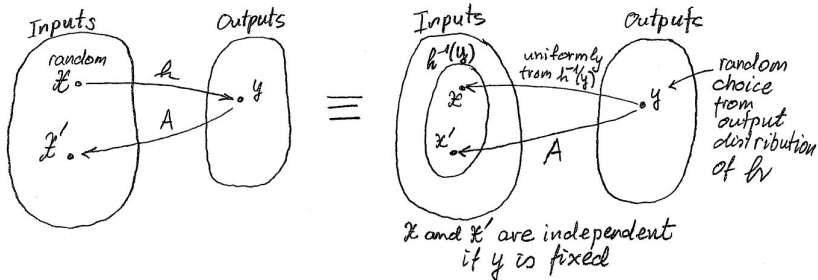 Inputs
Outputs
random
x
h
y
A
x'
≡
Inputs
Outputs
h⁻¹(y)
uniformly
from h⁻¹(y)
x
y
x'
A
random
choice
from
output
distribution
of h
x and x' are independent
if y is fixed